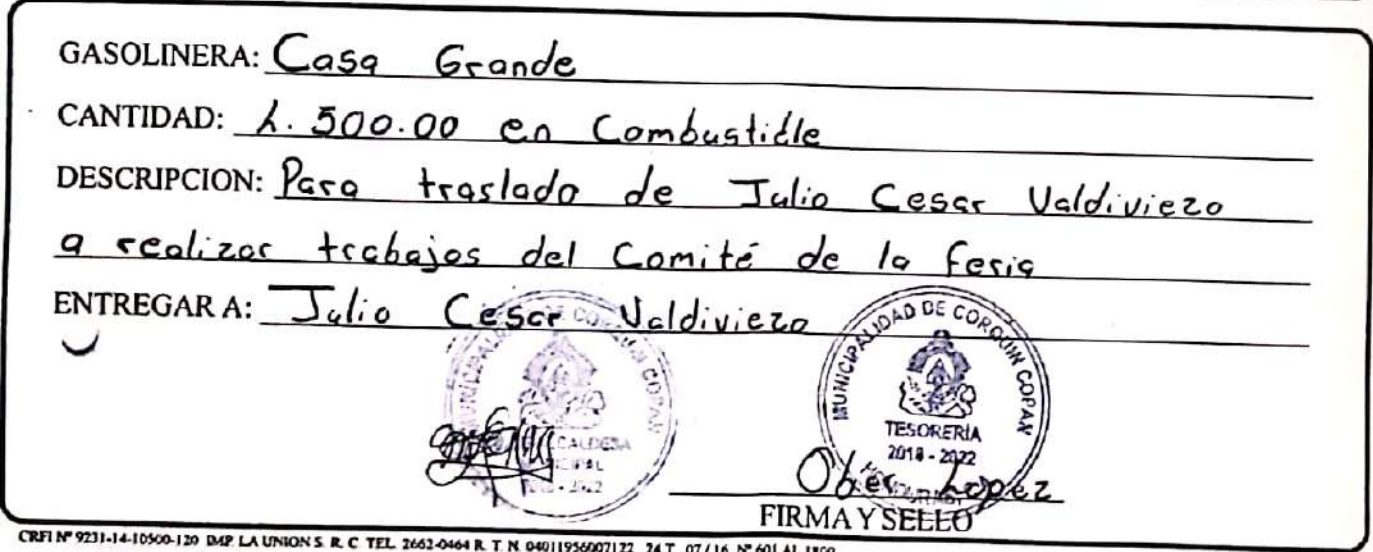 GASOLINERA: Casa Grande
CANTIDAD: L. 500.00 en Combustible
DESCRIPCION: Para traslado de Julio Cesar Valdiviezo
a realizar trabajos del Comité de la feria
ENTREGAR A: Julio Cesar Valdiviezo
MUNICIPALIDAD DE CORQUIN COPAN
MUNICIPALIDAD DE CORQUIN COPAN
TESORERÍA
2018 - 2022
HONDURAS
Ober Lopez
FIRMA Y SELLO
CRFI Nº 9231-14-10500-120 IMP. LA UNION S. R. C. TEL. 2662-0464 R. T. N. 04011956007122 24 T. 07 / 16 Nº 601 AL 1800